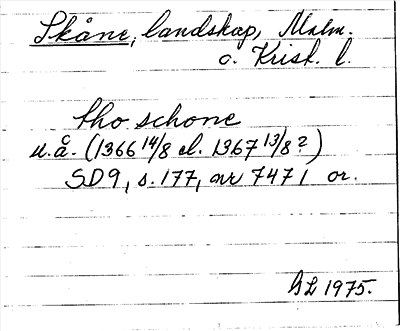 Skåne, landskap, Malm.
o. Krist. l.
tho schone
u.å. (1366 14/8 el. 1367 13/8?)
SD9, s. 177, nr 7471 or.
GL 1975.